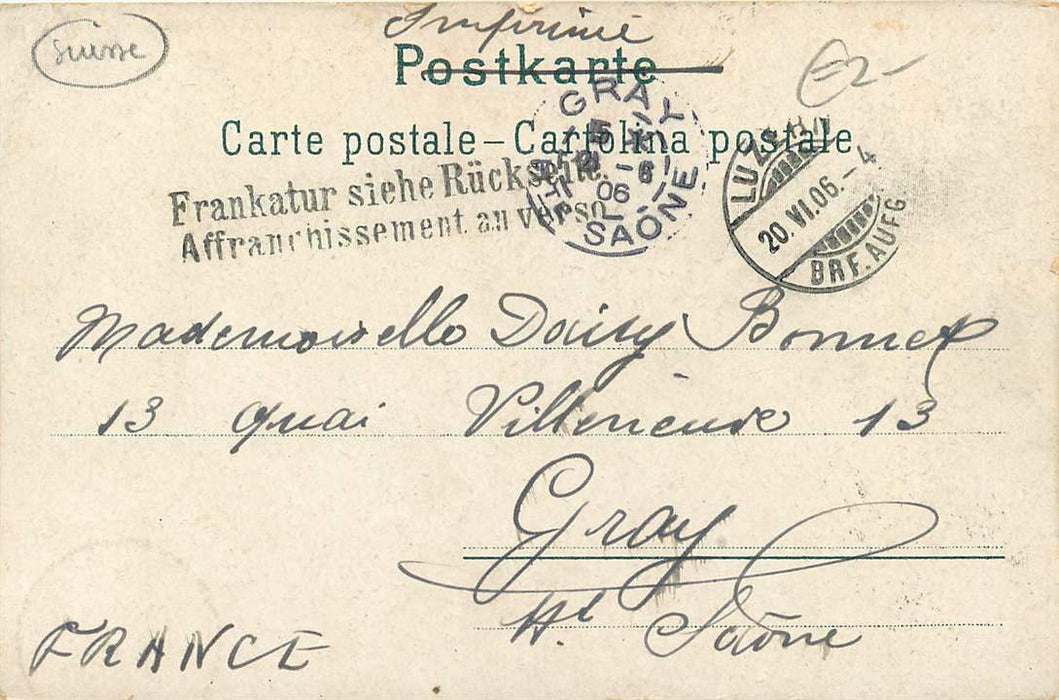 Imprimé
Suisse
Postkarte
Carte postale – Cartolina postale
Frankatur siehe Rückseite.
Affranchissement au verso
GRAY
21 – 6
06
HTE SAÔNE
LUZERN
20.VI.06.–4
BRF. AUFG.
Mademoiselle Daisy Bonnet
13 quai Villeneuve 13
Gray
Hte Saône
FRANCE